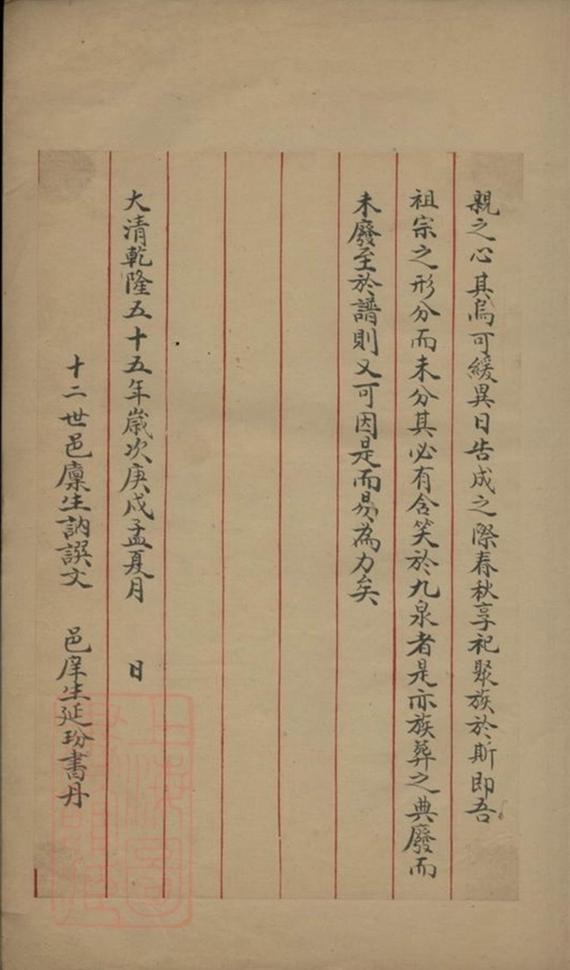 親之心其烏可緩異日告成之際春秋享祀聚族於斯即吾
祖宗之形分而未分其必有含笑於九泉者是亦族葬之典廢而
未廢至於譜則又可因是而易為力矣
大清乾隆五十五年歲次庚戌孟夏月　日
十二世邑廩生訥譔文　邑庠生延玢書丹